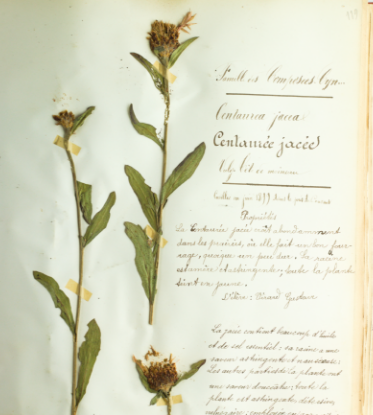 Famille des Composées Cyn
Centaurea jacea
Centaurée jacée
Propriétés
La Centaurée jacée croît abondamment
dans les prairies, où elle fait un bon four
rage, quoique un peu dur. La racine
est amère et astringente, toute la plante
teint en jaune.
Gustave
La jacée contient beaucoup d'huile
et de sel essentiel; sa racine a une
saveur astringente et nauséeuse;
Les autres parties de la plante ont
une saveur douceâtre; toute la
plante est astringente, détersive,